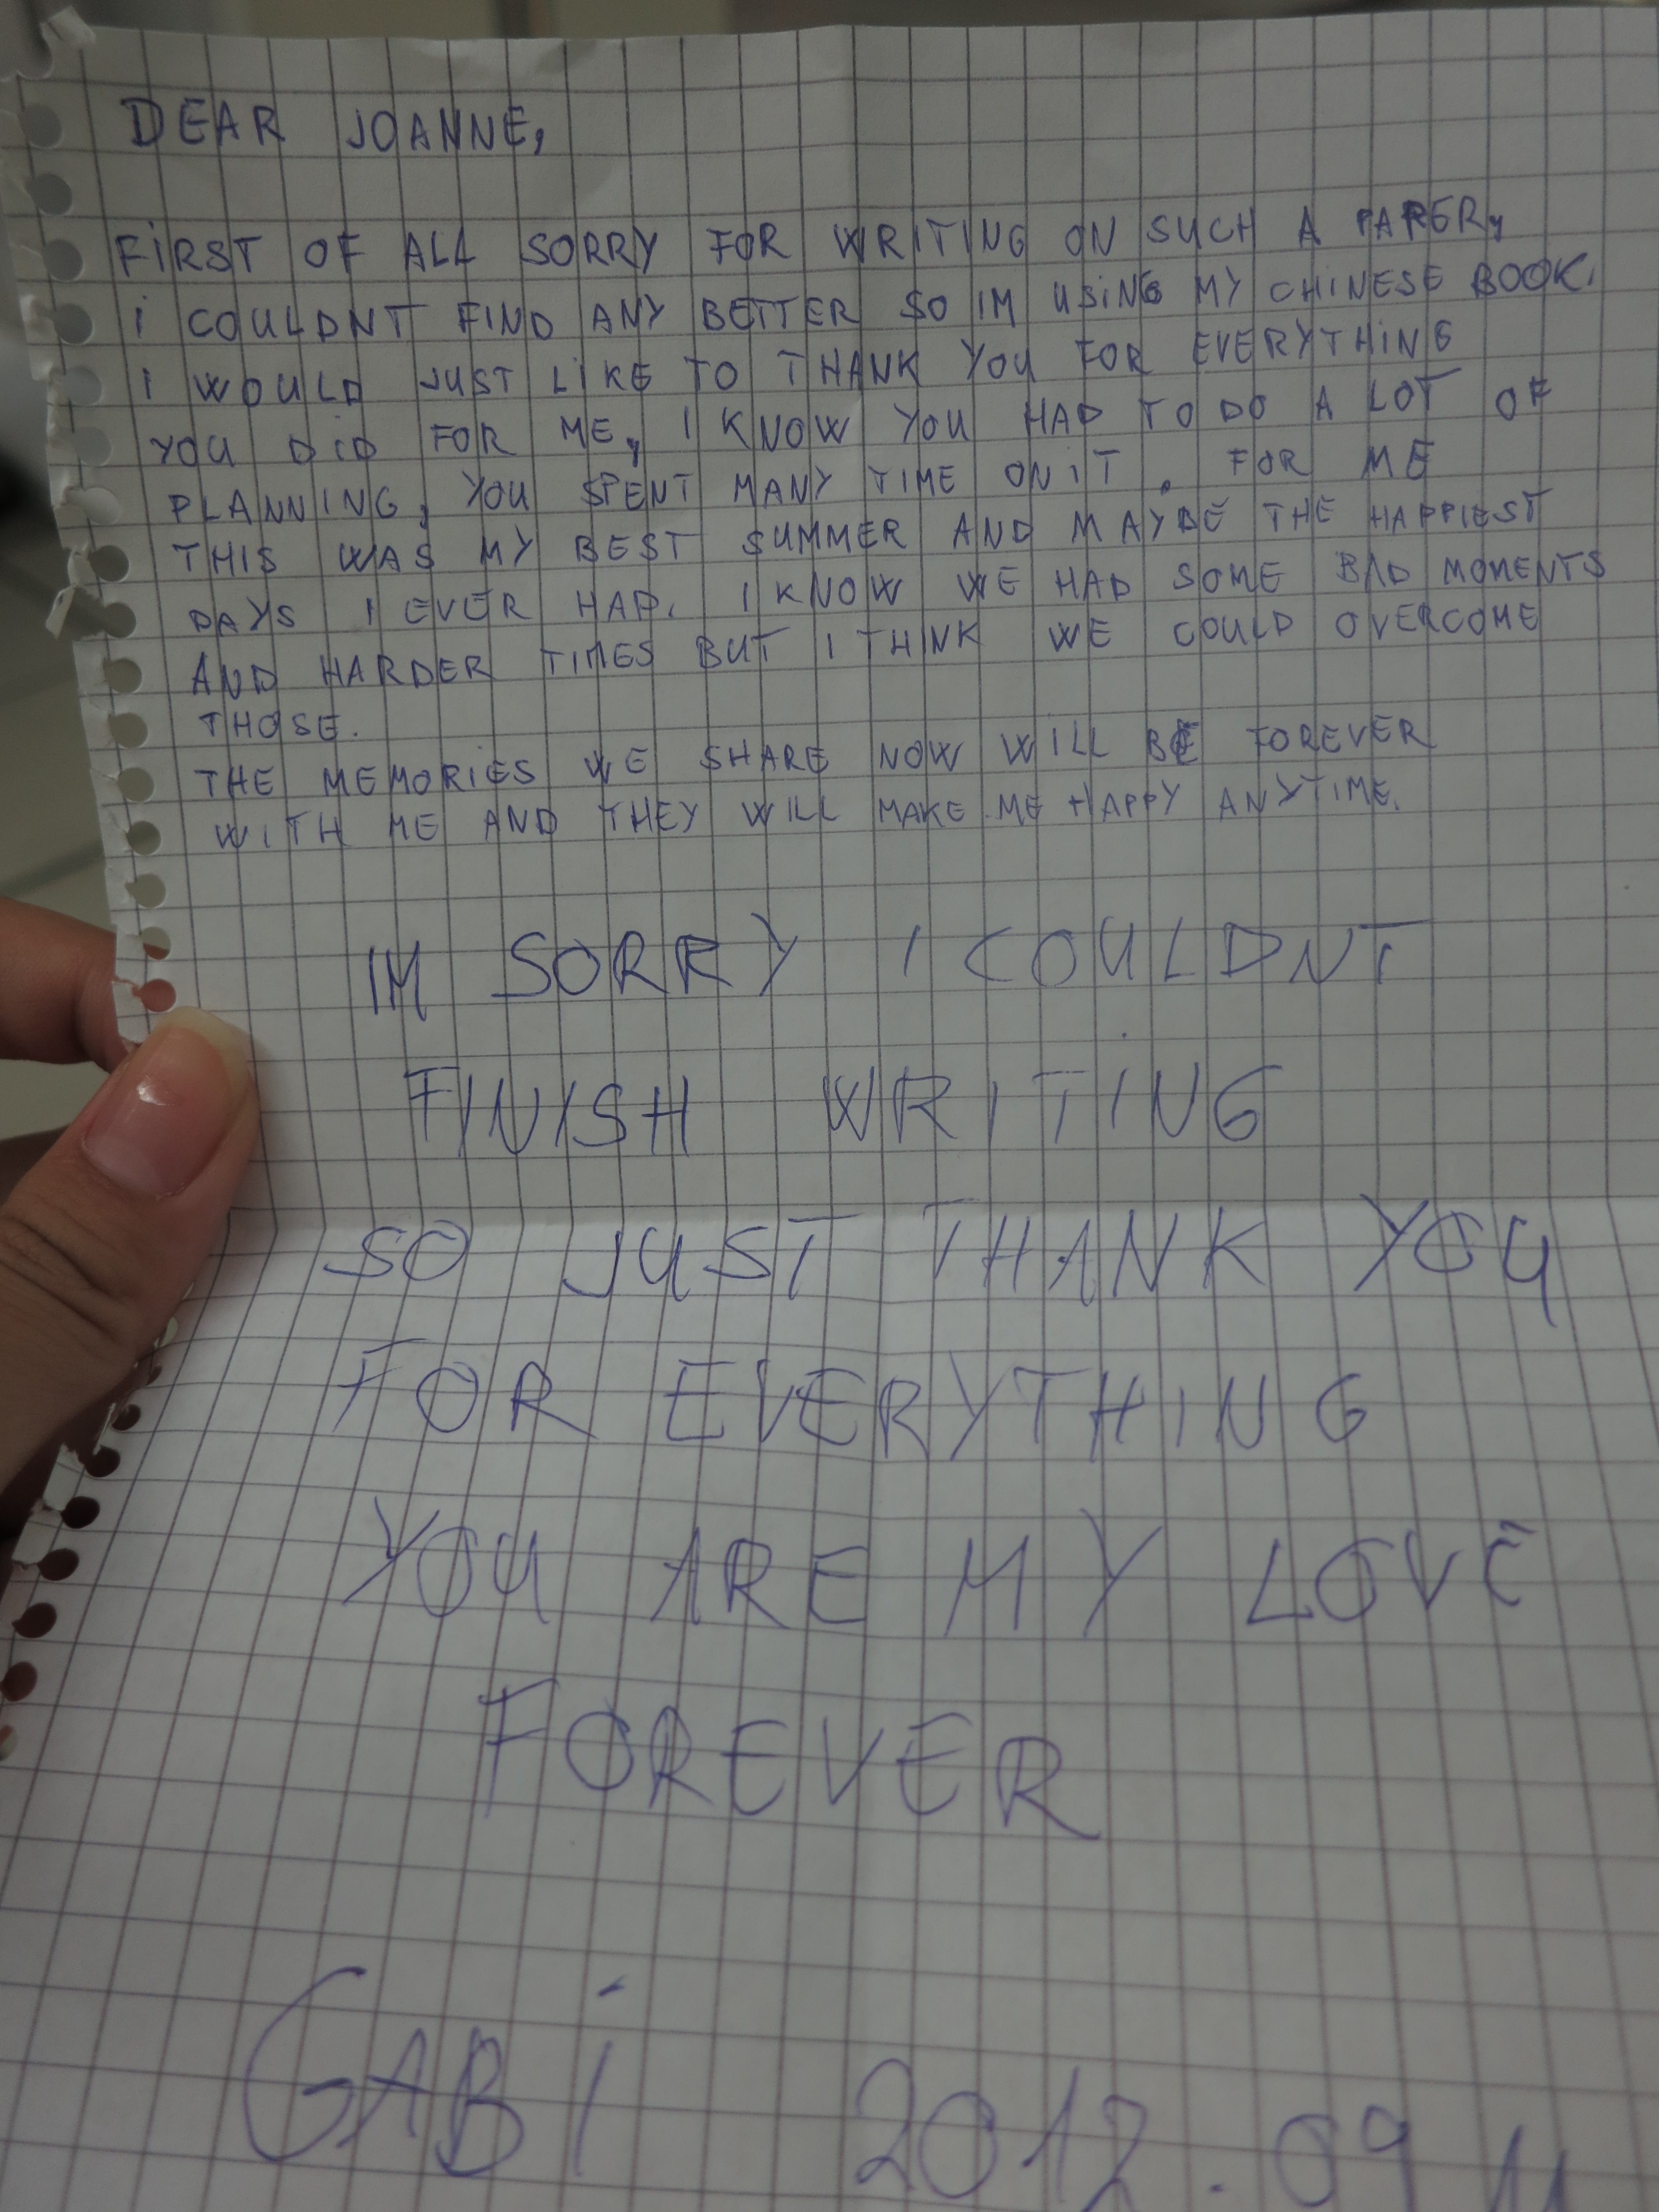 DEAR JOANNE,
FiRST OF ALL SORRY FOR WRITING ON SUCH A PAPER,
i COULDNT FIND ANY BETTER SO IM USiNG MY CHINESE BOOK.
I WOULD JUST LiKE TO THANK YOU FOR EVERYTHiNG
YOU DiD FOR ME, I KNOW YOU HAD TO DO A LOT OF
PLANNING, YOU SPENT MANY TIME ON iT. FOR ME
THIS WAS MY BEST SUMMER AND MAYBE THE HAPPIEST
DAYS I EVER HAD. I KNOW WE HAD SOME BAD MOMENTS
AND HARDER TIMES BUT I THINK WE COULD OVERCOME
THOSE.
THE MEMORiES WE SHARE NOW WILL BE FOREVER
WITH ME AND THEY WILL MAKE ME HAPPY ANYTIME.
IM SORRY I COULDNT
FINISH WRITiNG
SO JUST THANK YOU
FOR EVERYTHING
YOU ARE MY LOVE
FOREVER
GABi 2012.09.11